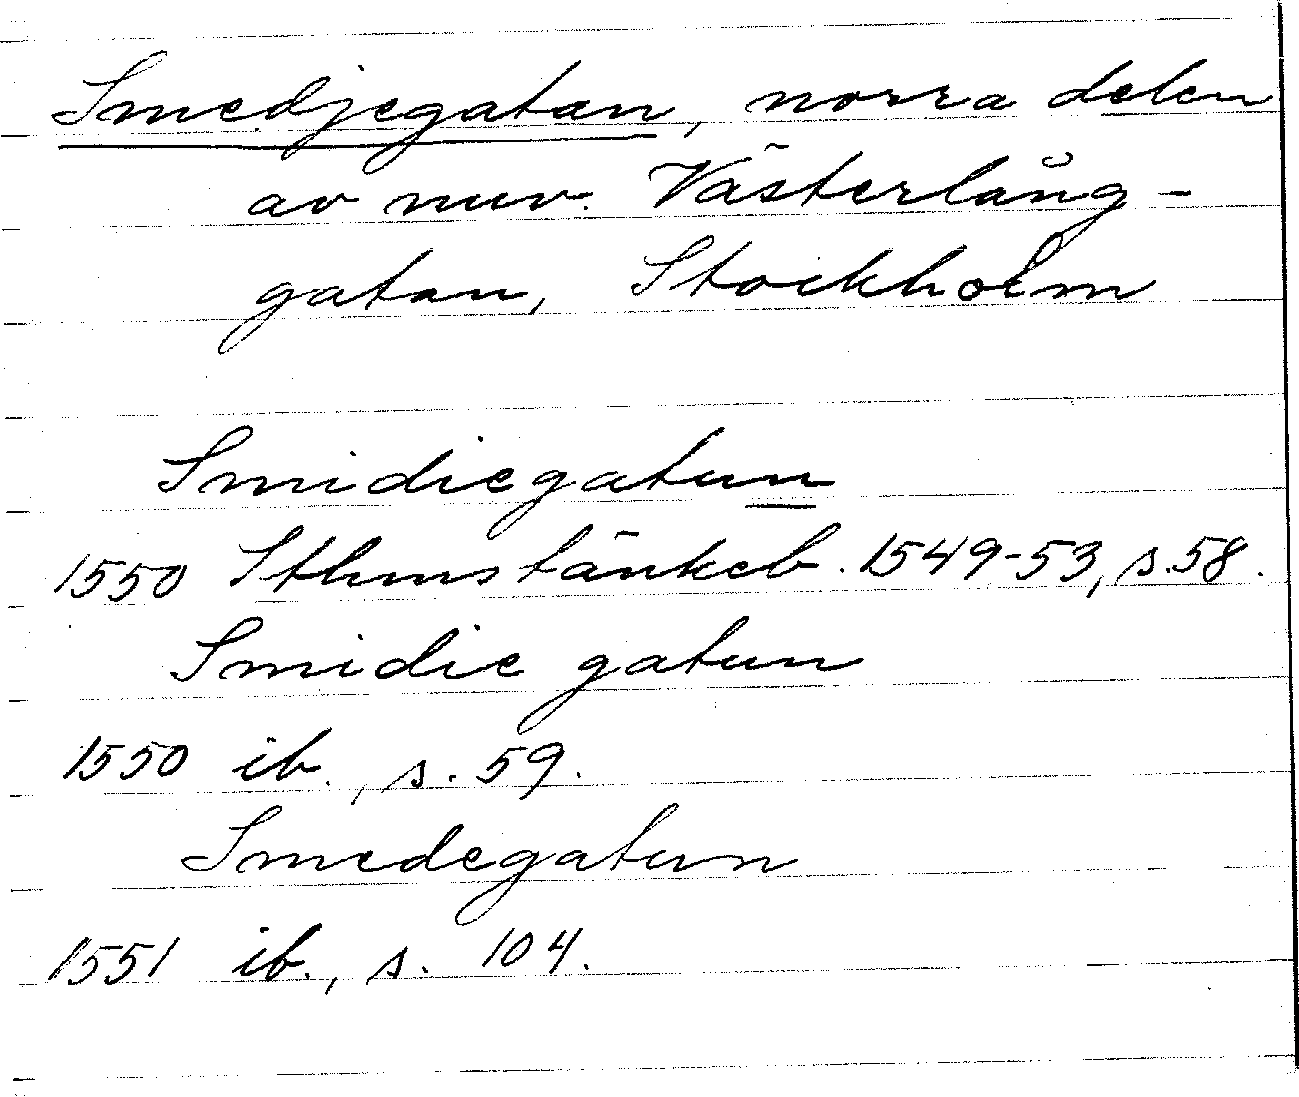 Smedjegatan, norra delen
av nuv. Västerlång-
gatan, Stockholm
Smidiegatun
1550 Sthms tänkeb. 1549-53, s. 58.
Smidie gatun
1550 ib., s. 59.
Smedegatun
1551 ib., s. 104.